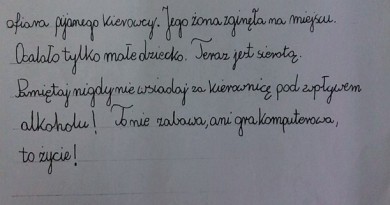 ofiara pijanego kierowcy. Jego żona zginęła na miejscu.
Ocalało tylko małe dziecko. Teraz jest sierotą.
Pamiętaj nigdy nie wsiadaj za kierownicę pod wpływem
alkoholu! To nie zabawa, ani gra komputerowa,
to życie!